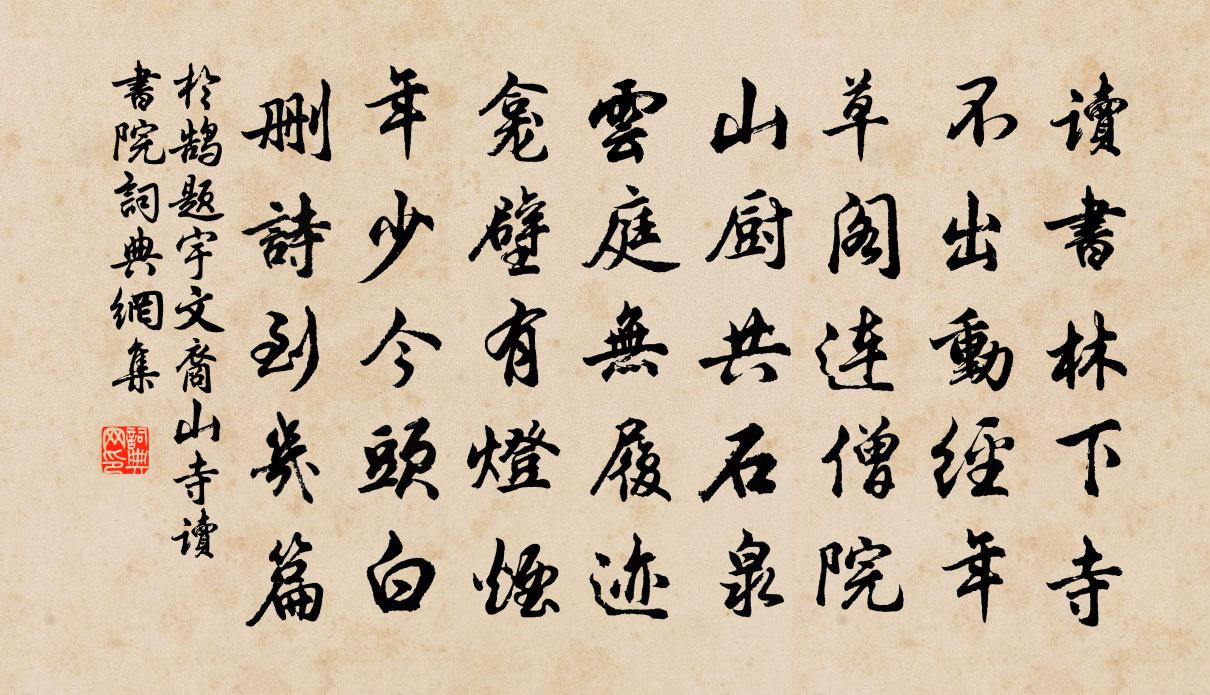 讀書林下寺
不出動經年
草阁連僧院
山厨共石泉
雲庭無履迹
龕壁有燈煙
年少今頭白
删詩到幾篇
於鵠題宇文裔山寺讀
書院詞典網集
詞典網印